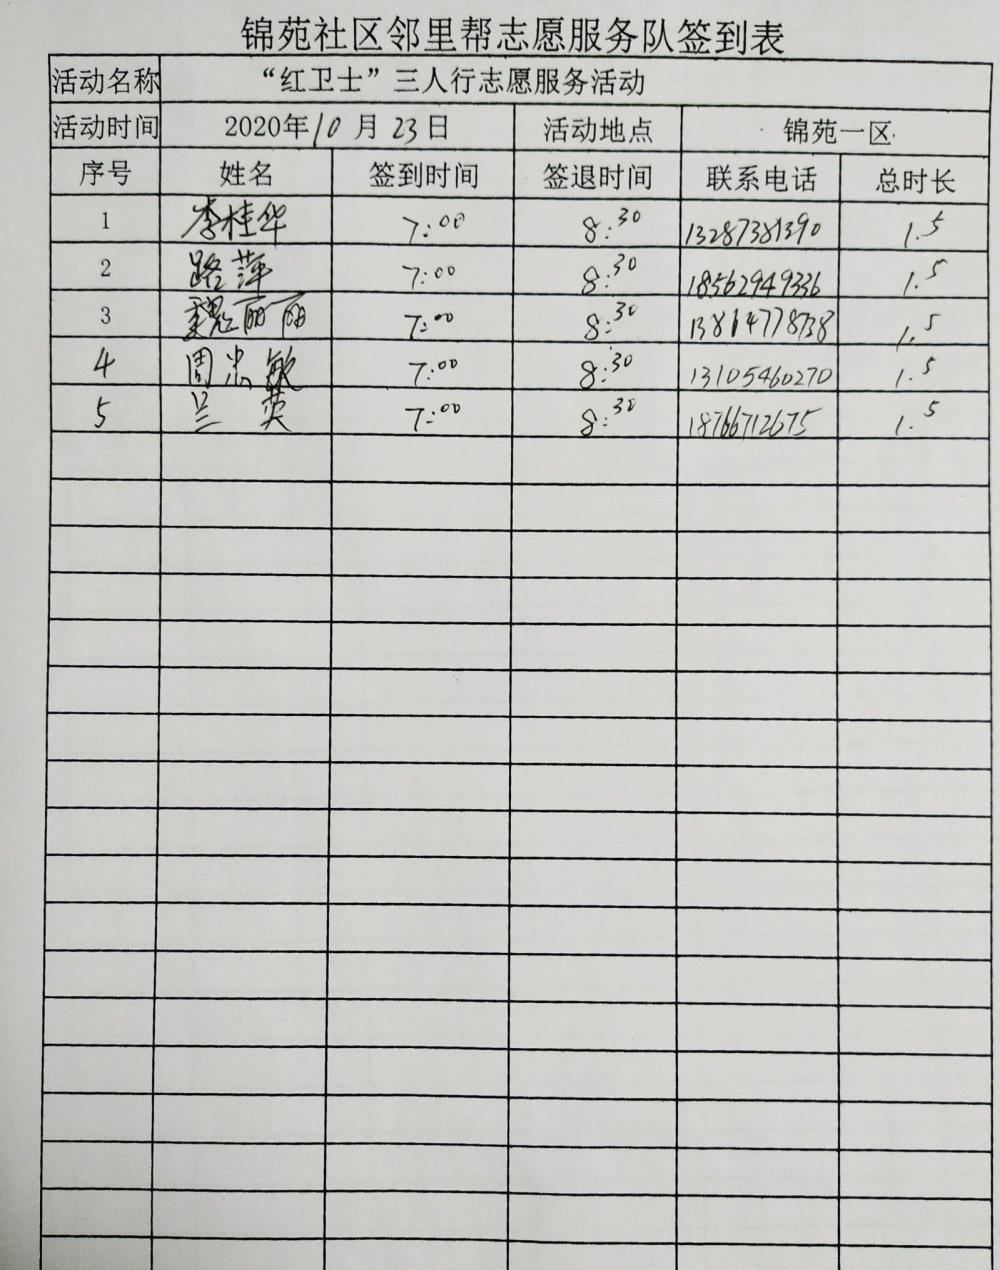 锦苑社区邻里帮志愿服务队签到表
活动名称 “红卫士”三人行志愿服务活动
活动时间 2020年10月23日 活动地点 锦苑一区
序号 姓名 签到时间 签退时间 联系电话 总时长
1 李桂华 7:00 8:30 13287381390 1.5
2 路萍 7:00 8:30 18562949336 1.5
3 魏丽丽 7:00 8:30 13864778738 1.5
4 周忠敏 7:00 8:30 13105460270 1.5
5 兰英 7:00 8:30 18766712675 1.5